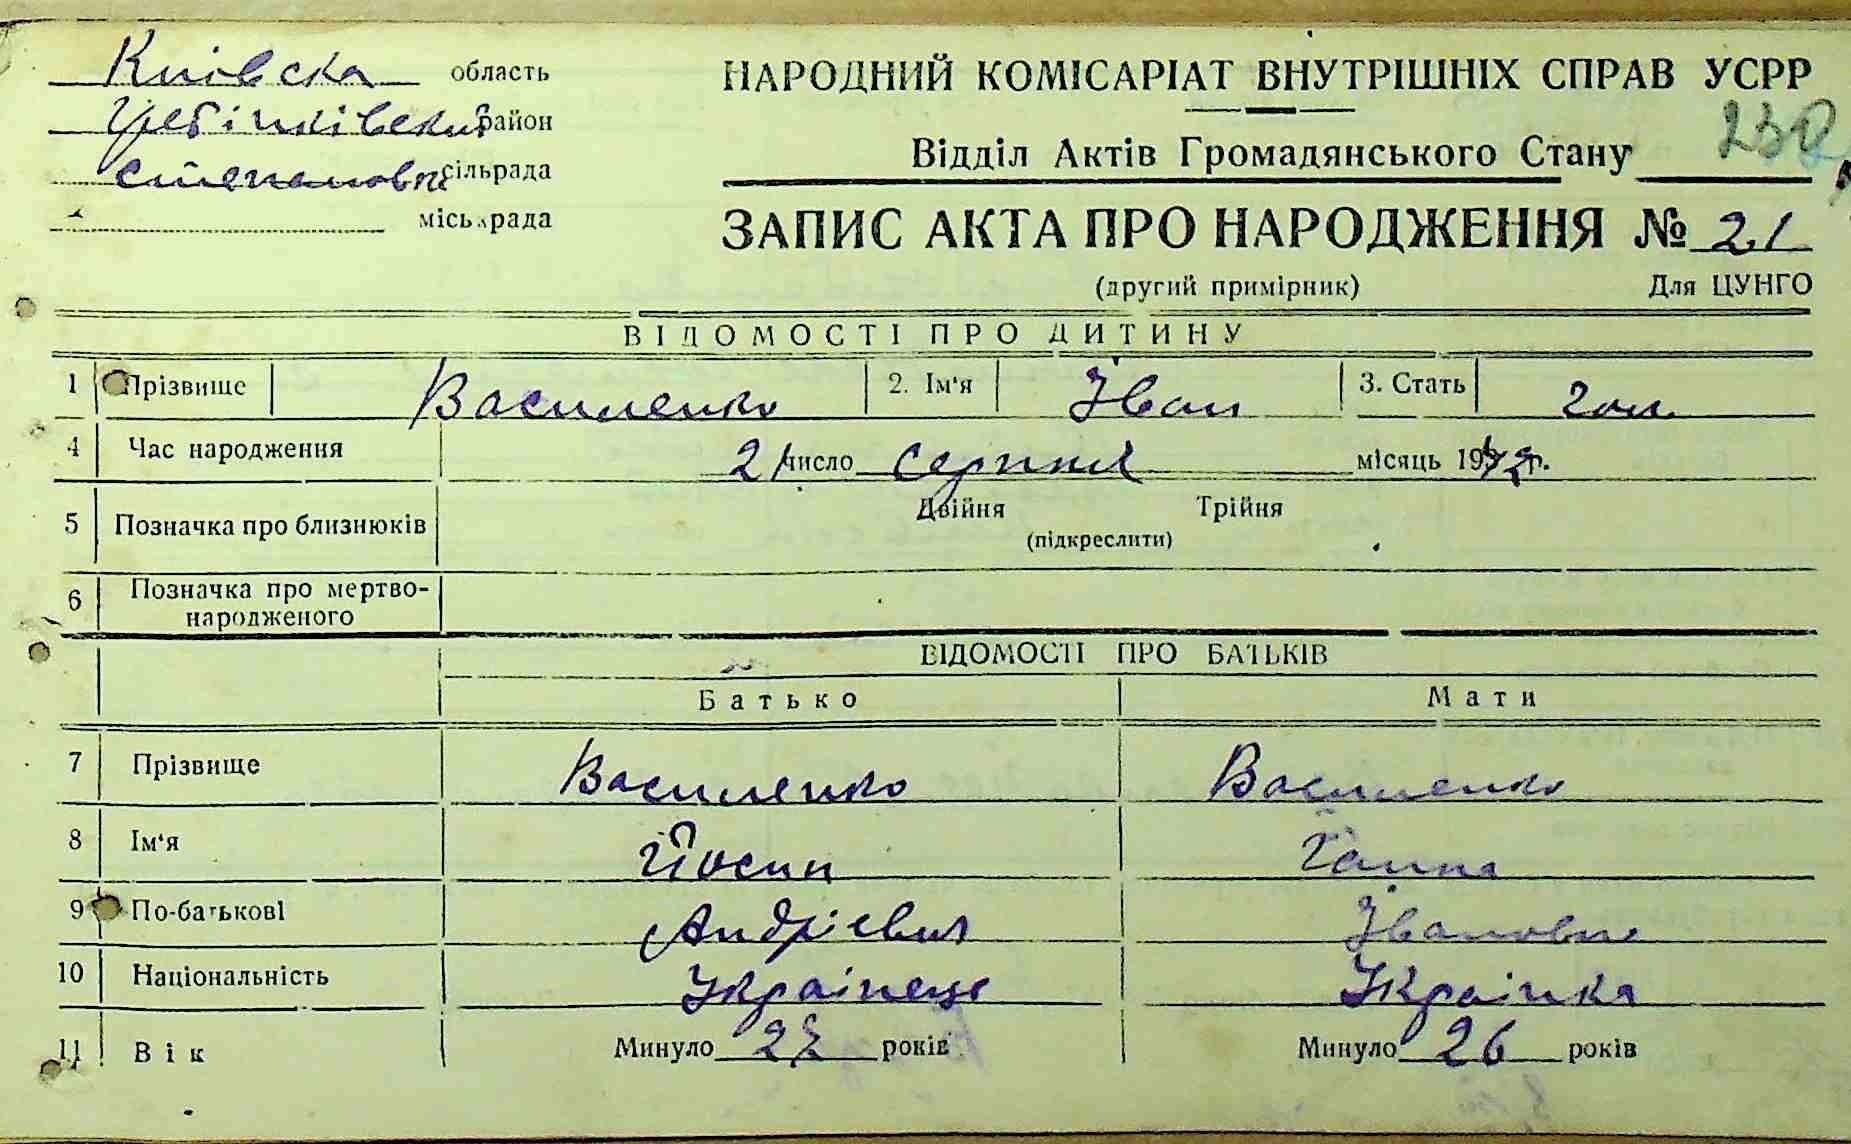 Київська область
Гребінківський район
Степанівс сільрада
міськрада
НАРОДНИЙ КОМІСАРІАТ ВНУТРІШНІХ СПРАВ УСРР
230
Відділ Актів Громадянського Стану
ЗАПИС АКТА ПРО НАРОДЖЕННЯ № 21
(другий примірник) Для ЦУНГО
ВІДОМОСТІ ПРО ДИТИНУ
1 Прізвище Василенко 2. Ім'я Іван 3. Стать чол.
4 Час народження 21 число Серпня місяць 1942 р.
5 Позначка про близнюків Двійня Трійня
(підкреслити)
6 Позначка про мертво-
народженого
ВІДОМОСТІ ПРО БАТЬКІВ
Батько Мати
7 Прізвище Василенко Василенко
8 Ім'я Йосип Ганна
9 По-батькові Андрієвич Івановна
10 Національність Українець Українка
11 Вік Минуло 27 років Минуло 26 років